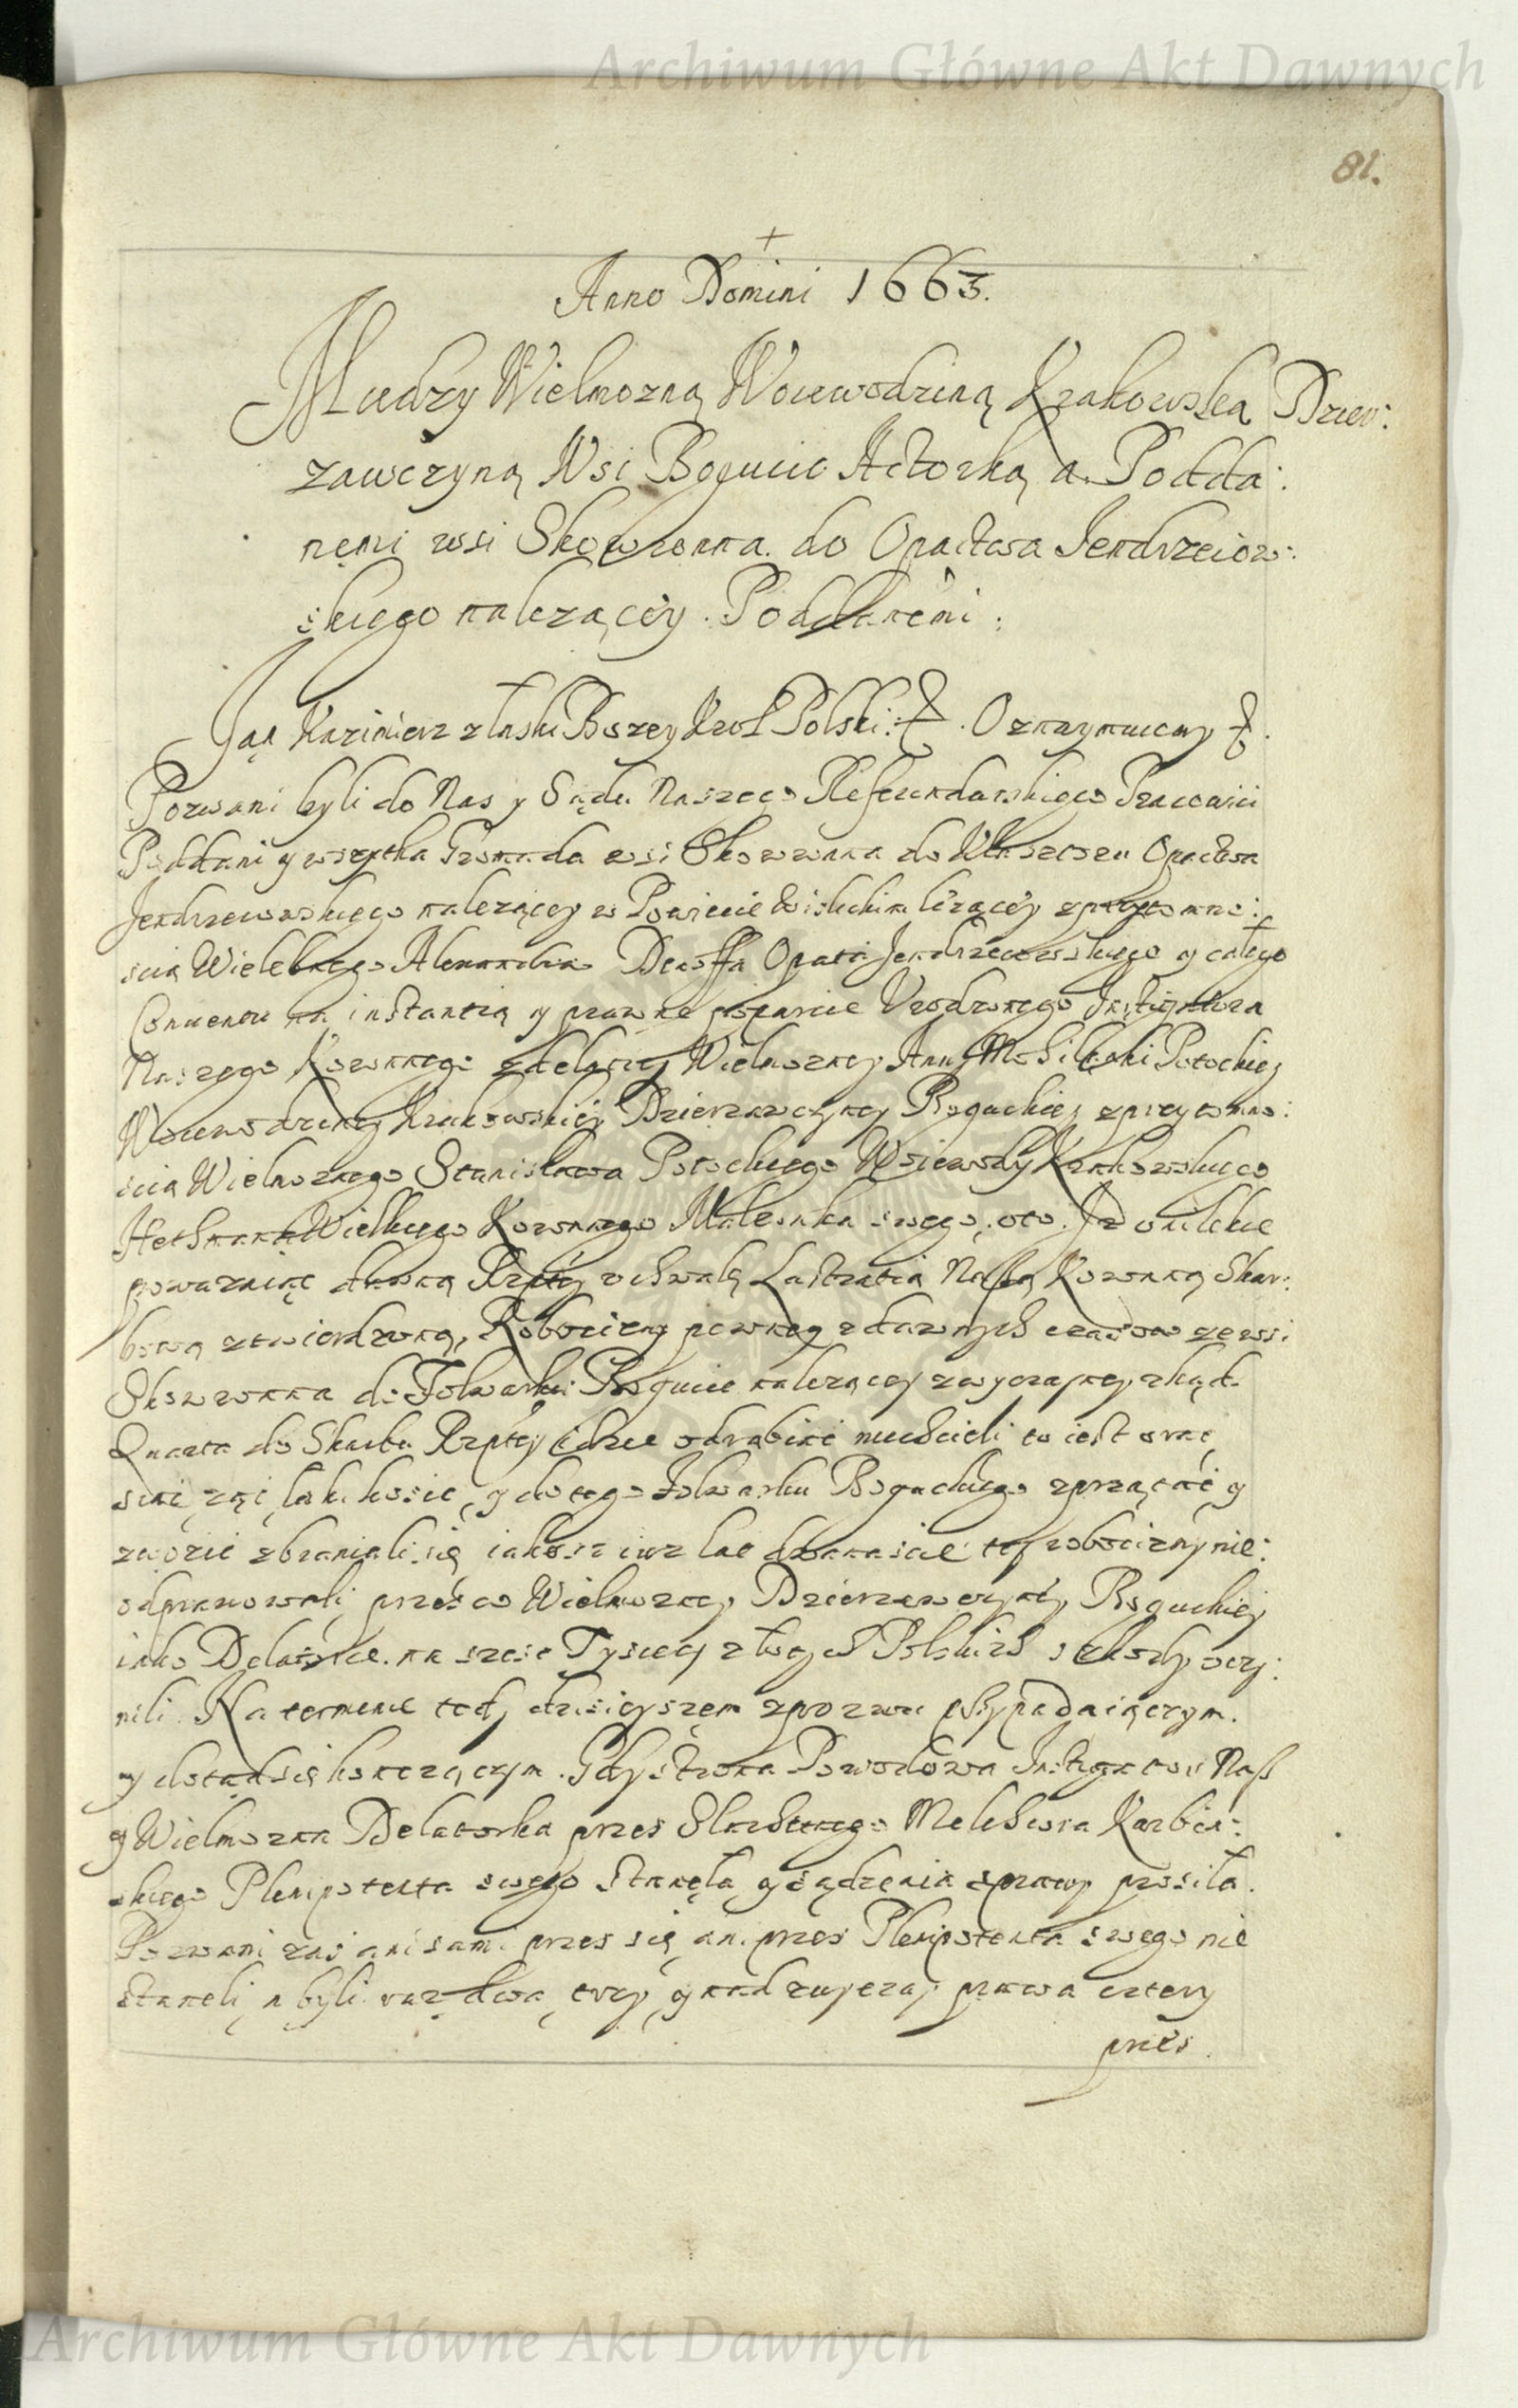 Archiwum Główne Akt Dawnych
81.
+
Anno Domini 1663.
Miedzy Wielmozną Woiewodziną Krakowską Dzier:
zawczyną Wsi Bogucic Actorką a Podda:
nęmi wsi Skowronna do Opactwa Jendrzeiow:
skiego nalezącey. Poddanemi:
Jan Kazimierz z łaski Bozey Krol Polski: Oznaymuiemy
Pozwani byli do Nas y Sądu Naszego Referendarskiego Pracowici
Poddani y wszytka Gromada wsi Skowronna do Klasztoru Opactwa
Jendrzeiowskiego nalezącey w Powiecie Wislickim lezącey z przytomno:
scią Wielebnego Alexandra Denoffa Opata Jendrzeiowskiego y całego
Conuentu na instantią y prawne poparcie Urodzonego Instigatora
Naszego Koronnego z delaciey Wielmozney Anny Mohilanki Potockiey
Woiewodziney Krakowskiey Dzierzawczyney Boguckiey z przytomno:
scią Wielmoznego Stanisława Potockiego Woiewody Krakowskiego
Hethmana Wielkiego Koronnego Malzonka swego, oto. Iz oni lekce
powazaiąc dawną Rzptey vchwałę Lustratią Naszą Koronną Skar:
bową stwierdzoną, Robocizny pewney z dawnych czasow ze wsi
Skowronna do Folwarku Bogucic nalezącey zwyczayney zkąd
Quarta do Skarbu Rzptey idzie odrabiać niechcieli to iest orac
siac ząc łąk kosic y do tego Folwarku Boguckiego sprzątac y
zwozic zbraniali się iakosz iusz lat dwanascie tey robocizny nie:
odprawowali przes co Wielmozney Dzierzawczyney Boguckiey
iako Delatorce na szesc Tysiecy złotych Polskich szkody vczy:
nili. Na terminie tedy dzisieyszem z pozwu przypadaiączym.
y dotąd się konczączym. Gdy strona Powodowa Instygator Nasz
y Wielmozna Delatorka przes Slachetnego Melchiora Karbin:
skiego Plenipotenta swego Stanęła y sądzenia sprawy prosiła.
Pozwani zas ani sami przes się ani przes Plenipotenta swego nie
staneli, a byli raz dwa, trzy, y nad zwyczay prawa cztery
przes.
Archiwum Główne Akt Dawnych